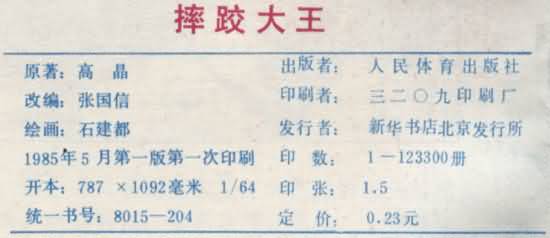 摔跤大王
原著：高 晶 出版者：人民体育出版社
改编：张国信 印刷者：三二〇九印刷厂
绘画：石建都 发行者：新华书店北京发行所
1985年5月第一版第一次印刷 印 数：1—123300册
开本：787 ×1092毫米 1/64 印 张：1.5
统一书号：8015—204 定 价：0.23元